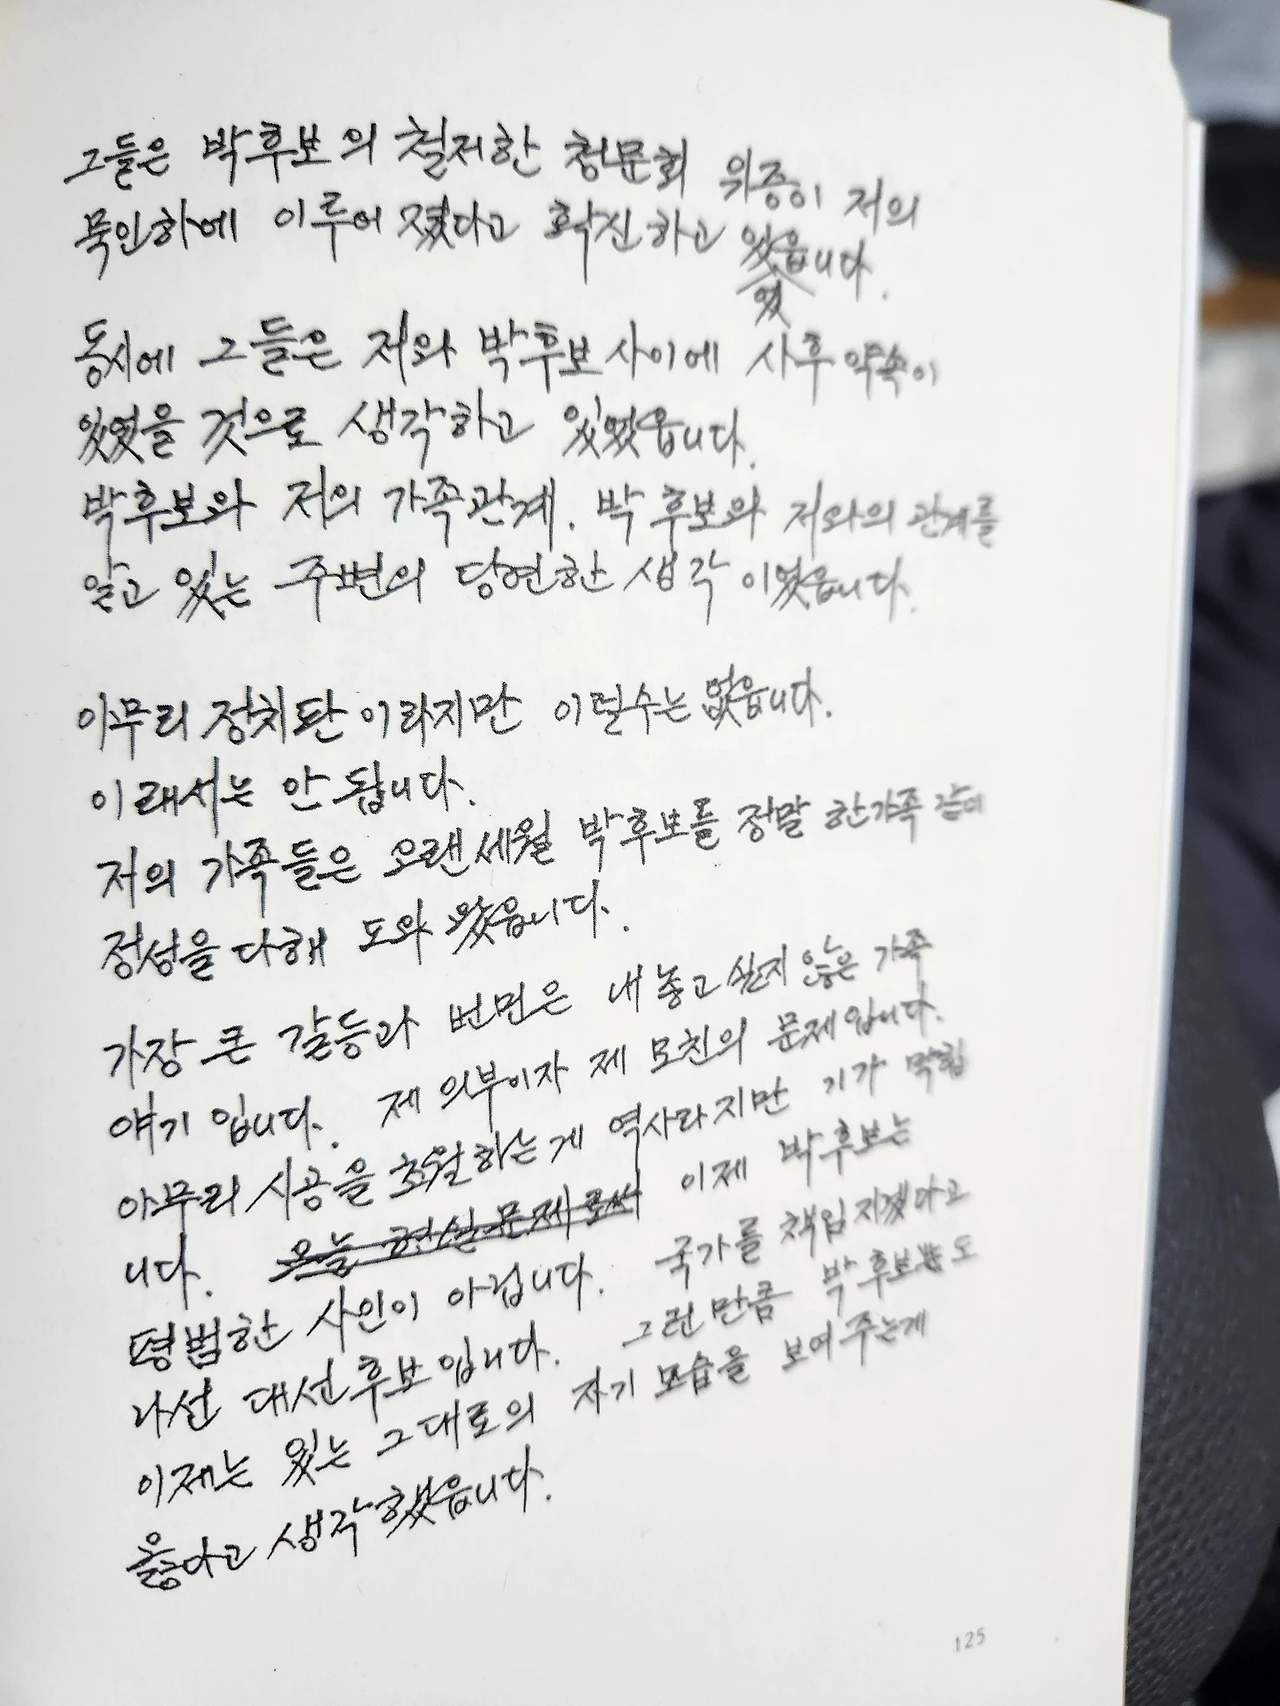 그들은 박후보의 철저한 청문회 위증이 저의
묵인하에 이루어 졌다고 확신하고 있읍니다.
었
동시에 그들은 저와 박후보사이에 사후 약속이
있었을 것으로 생각하고 있었읍니다.
박후보와 저의 가족관계. 박후보와 저와의 관계를
알고 있는 주변의 당연한 생각이었읍니다.
아무리 정치판이라지만 이럴수는 없읍니다.
이래서는 안 됩니다.
저의 가족들은 오랜세월 박후보를 정말 한가족 같이
정성을 다해 도와 왔읍니다.
가장 큰 갈등과 번민은 내놓고 싶지 않은 가족
얘기 입니다. 제 의부이자 제 모친의 문제입니다.
아무리 시공을 초월하는게 역사라지만 기가 막힙
니다. 오늘 현실문제로써 이제 박후보는
평범한 사인이 아닙니다. 국가를 책임지겠다고
나선 대선후보입니다. 그런만큼 박후보도
이제는 있는 그대로의 자기모습을 보여주는게
옳다고 생각했읍니다.
125